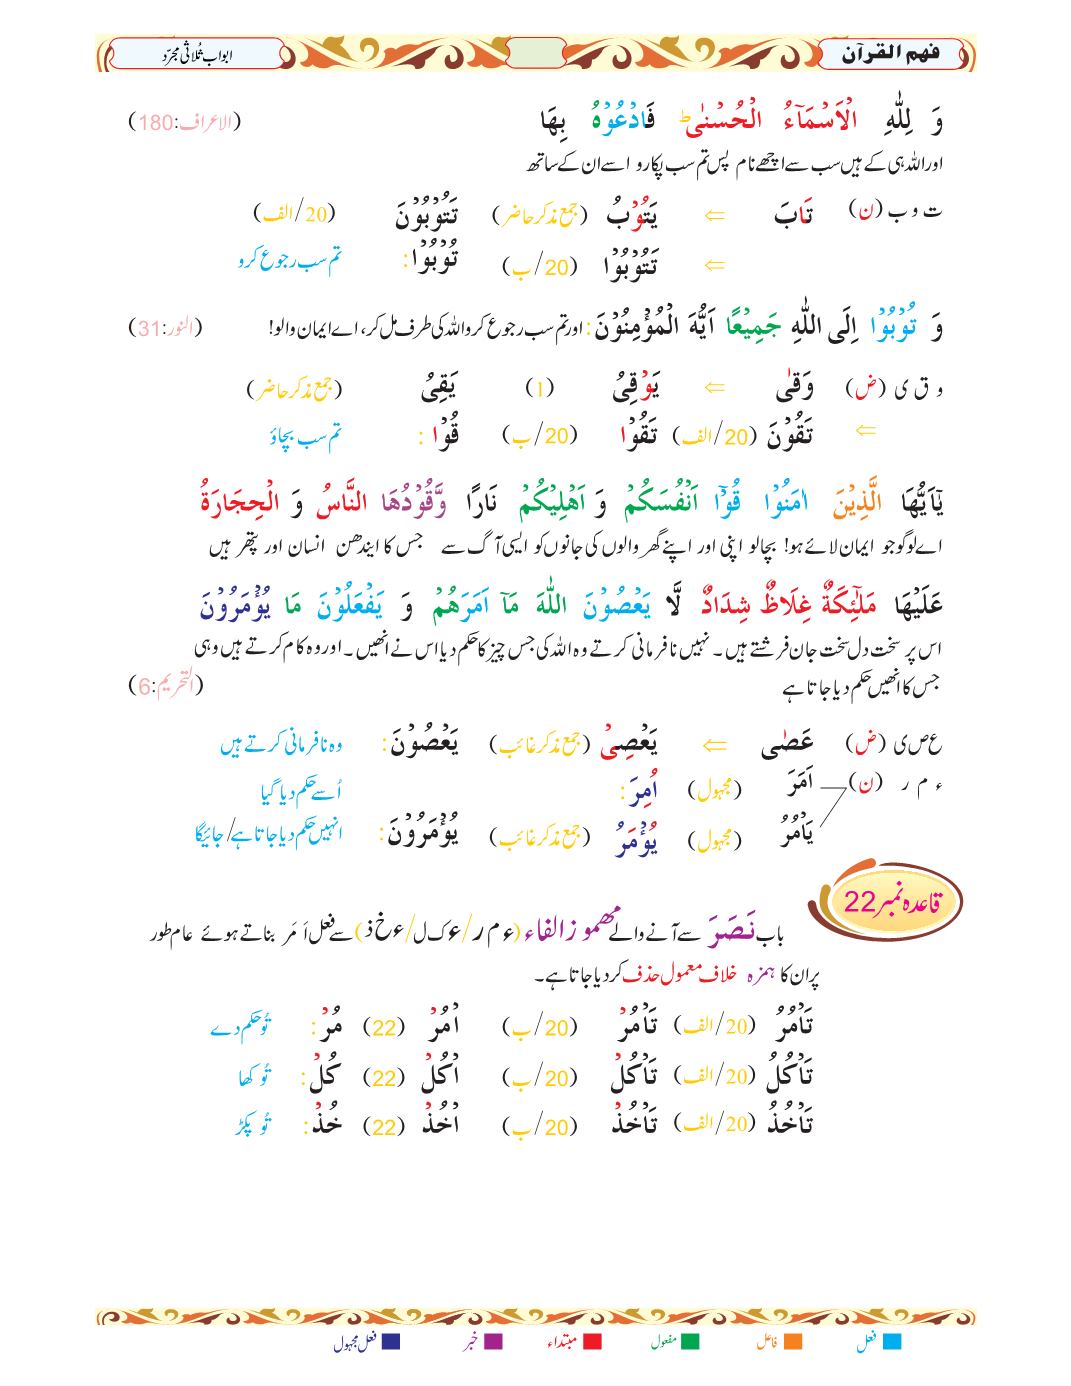 فهم القرآن
ابواب ثُلاثی مجرّد
وَ لِلّٰهِ الْاَسْمَآءُ الْحُسْنٰى ؕ فَادْعُوْهُ بِهَا (الاعراف:180)
اور اللہ ہی کے ہیں سب سے اچھے نام پس تم سب پکارو اسے ان کے ساتھ
ت و ب (ن) تَابَ ⇐ يَتُوْبُ (جمع مذکر حاضر) تَتُوْبُوْنَ (20/الف)
⇐ تَتُوْبُوْا (20/ب) تُوْبُوْا : تم سب رجوع کرو
وَ تُوْبُوْا اِلَى اللّٰهِ جَمِيْعًا اَيُّهَ الْمُؤْمِنُوْنَ : اور تم سب رجوع کرو اللہ کی طرف مل کر، اے ایمان والو! (النور:31)
و ق ی (ض) وَقٰى ⇐ يَوْقِىُ (1) يَقِىُ (جمع مذکر حاضر)
⇐ تَقُوْنَ (20/الف) تَقُوْا (20/ب) قُوْا : تم سب بچاؤ
يٰٓاَيُّهَا الَّذِيْنَ اٰمَنُوْا قُوْٓا اَنْفُسَكُمْ وَ اَهْلِيْكُمْ نَارًا وَّقُوْدُهَا النَّاسُ وَ الْحِجَارَةُ
اے لوگو جو ایمان لائے ہو! بچالو اپنی اور اپنے گھر والوں کی جانوں کو ایسی آگ سے جس کا ایندھن انسان اور پتھر ہیں
عَلَيْهَا مَلٰٓئِكَةٌ غِلَاظٌ شِدَادٌ لَّا يَعْصُوْنَ اللّٰهَ مَآ اَمَرَهُمْ وَ يَفْعَلُوْنَ مَا يُؤْمَرُوْنَ
اس پر سخت دل سخت جان فرشتے ہیں۔ نہیں نافرمانی کرتے وہ اللہ کی جس چیز کا حکم دیا اس نے انھیں۔ اور وہ کام کرتے ہیں وہی
جس کا انھیں حکم دیا جاتا ہے (التحریم:6)
ع ص ی (ض) عَصٰى ⇐ يَعْصِىْ (جمع مذکر غائب) يَعْصُوْنَ : وہ نافرمانی کرتے ہیں
ء م ر (ن) اَمَرَ (مجہول) اُمِرَ : اُسے حکم دیا گیا
يَاْمُرُ (مجہول) يُؤْمَرُ (جمع مذکر غائب) يُؤْمَرُوْنَ : انہیں حکم دیا جاتا ہے/جائیگا
قاعدہ نمبر 22
باب نَصَرَ سے آنے والے مهموز الفاء (ء م ر/ء ک ل/ء خ ذ) سے فعل اَمَر بناتے ہوئے عام طور
پر ان کا ہمزہ خلاف معمول حذف کر دیا جاتا ہے۔
تَاْمُرُ (20/الف) تَاْمُرْ (20/ب) اْمُرْ (22) مُرْ : تُو حکم دے
تَاْكُلُ (20/الف) تَاْكُلْ (20/ب) اْكُلْ (22) كُلْ : تُو کھا
تَاْخُذُ (20/الف) تَاْخُذْ (20/ب) اْخُذْ (22) خُذْ : تُو پکڑ
فعل فاعل مفعول مبتداء خبر فعل مجہول